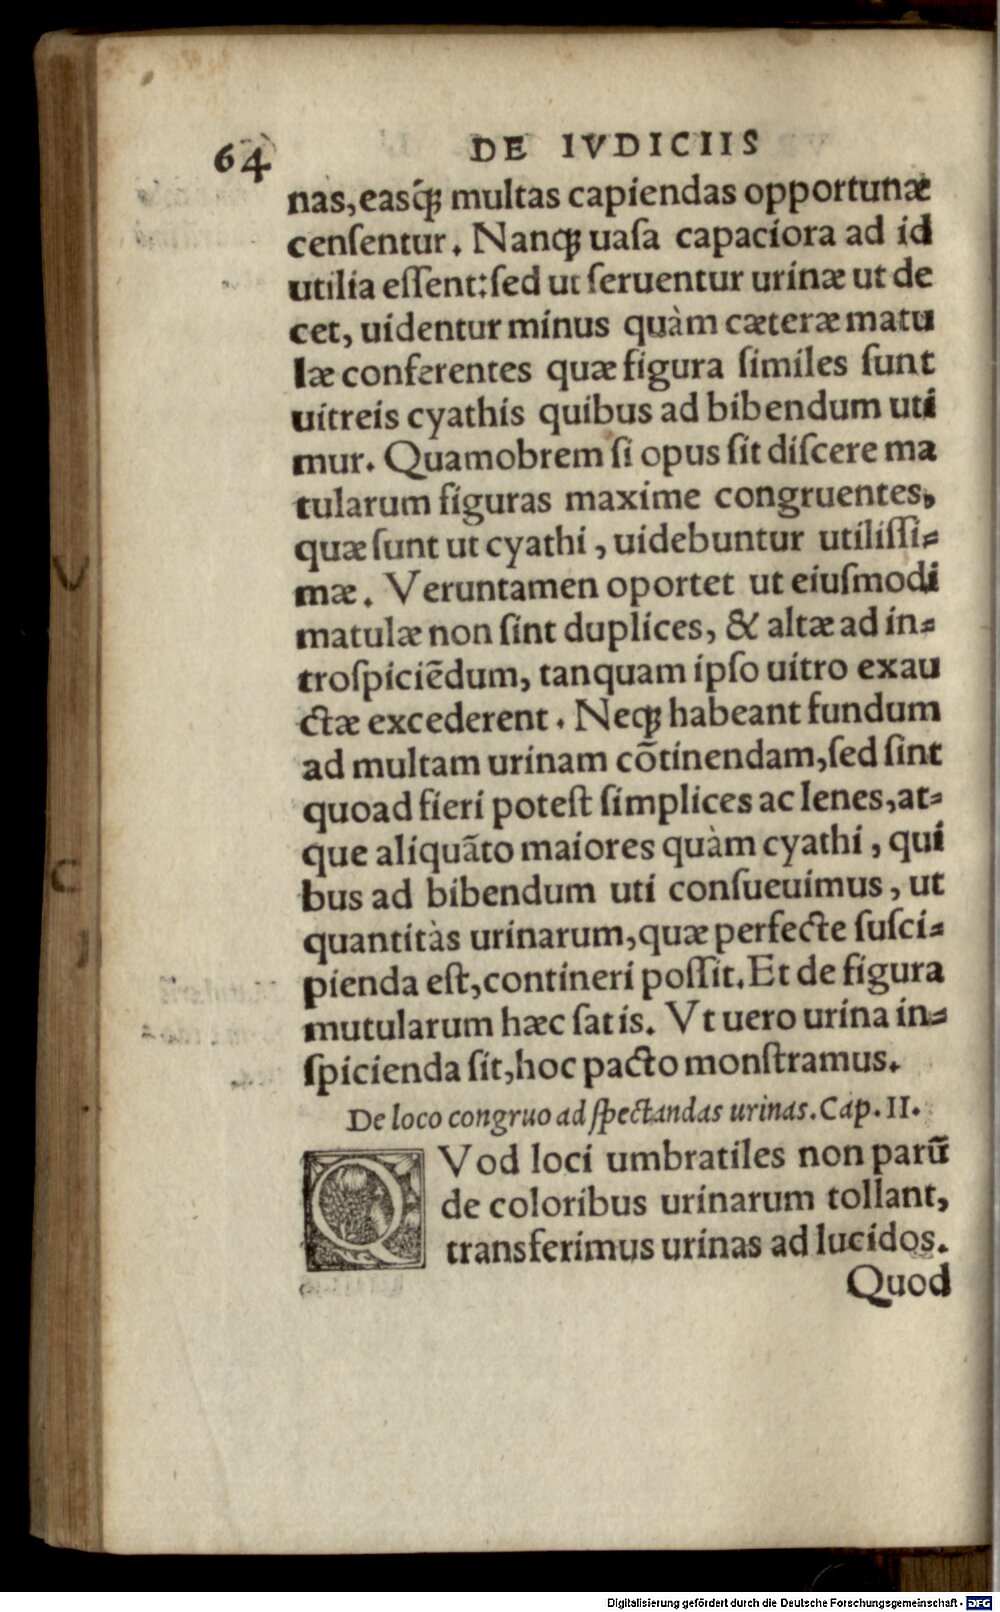 64 DE IVDICIIS
nas, easq́ꝫ multas capiendas opportunæ
censentur. Nanqꝫ uaſa capaciora ad id
utilia eſſent: sed ut ſeruentur urinæ ut de
cet, uidentur minus quàm cæteræ matu
læ conferentes quæ figura ſimiles ſunt
uitreis cyathis quibus ad bibendum uti
mur. Quamobrem ſi opus ſit diſcere ma
tularum figuras maxime congruentes,
quæ ſunt ut cyathi, uidebuntur utiliſſi⸗
mæ. Veruntamen oportet ut eiuſmodi
matulæ non ſint duplices, & altæ ad in⸗
troſpiciẽdum, tanquam ipſo uitro exau
ctæ excederent. Neqꝫ habeant fundum
ad multam urinam cõtinendam, ſed ſint
quoad fieri poteſt ſimplices ac lenes, at⸗
que aliquãto maiores quàm cyathi, qui
bus ad bibendum uti conſueuimus, ut
quantitàs urinarum, quæ perfecte ſuſci⸗
pienda eſt, contineri poſſit. Et de figura
mutularum hæc ſatis. Vt uero urina in⸗
ſpicienda ſit, hoc pacto monſtramus.
De loco congruo ad ſpectandas urinas. Cap. II.
QVod loci umbratiles non parũ
de coloribus urinarum tollant,
transferimus urinas ad lucidos.
Quod
Digitalisierung gefördert durch die Deutsche Forschungsgemeinschaft - DFG